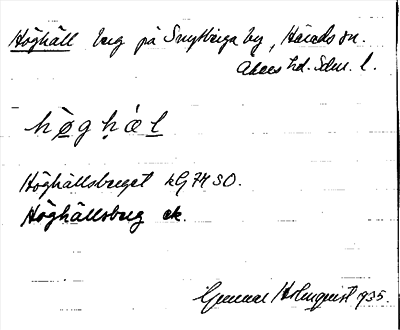 Höghäll berg på Snytberga by, Härads sn.
Åkers hd. Sdm. l.
høghæl
Höghällsberget kG 74 SO.
Höghällsberg ek.
Gunnar Holmquist 1935.